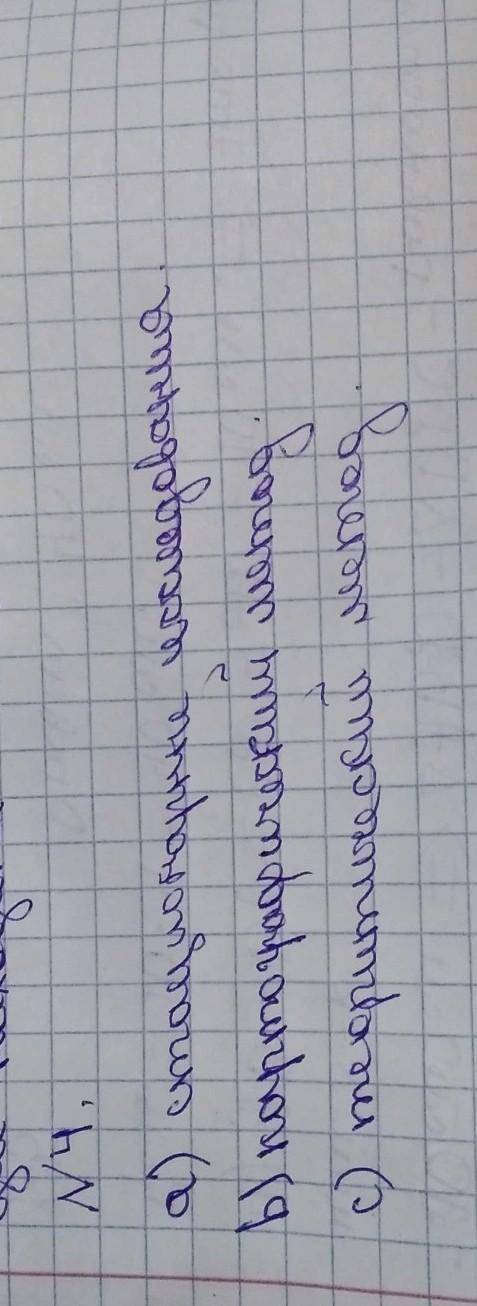 N4.
a) стационарные исследования.
b) картографический метод.
c) теоритический метод.